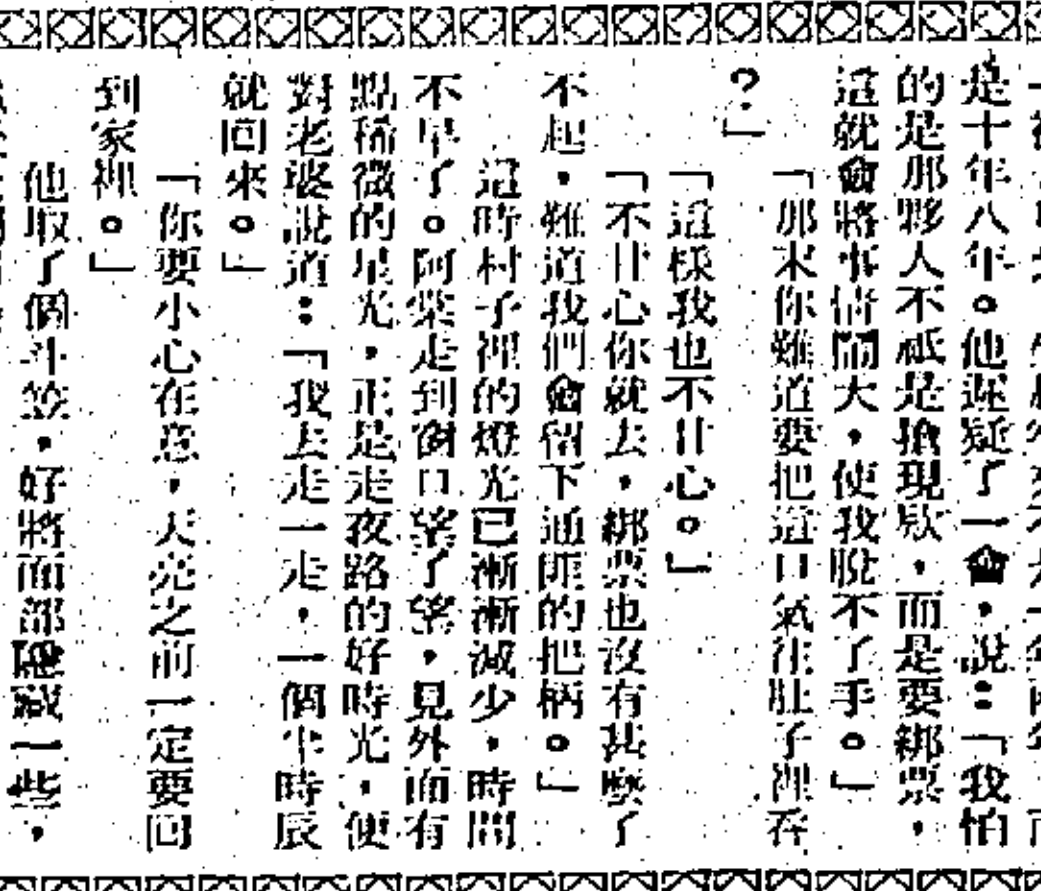 是十年八年。他遲疑了一會，說：「我怕
的是那夥人不祇是搶現欵，而是要綁票，
這就會將事情鬧大，使我脫不了手。」
「那末你難道要把這口氣往肚子裡吞
？」
「這樣我也不甘心。」
「不甘心你就去，綁票也沒有甚麼了
不起，難道我們會留下通匪的把柄。」
這時村子裡的燈光已漸漸減少，時間
不早了。阿棠走到窗口望了望，見外面有
點稀微的星光，正是走夜路的好時光，便
對老婆說道：「我去走一走，一個半時辰
就回來。」
「你要小心在意，天亮之前一定要回
到家裡。」
他取了個斗笠，好將面部隱藏一些，